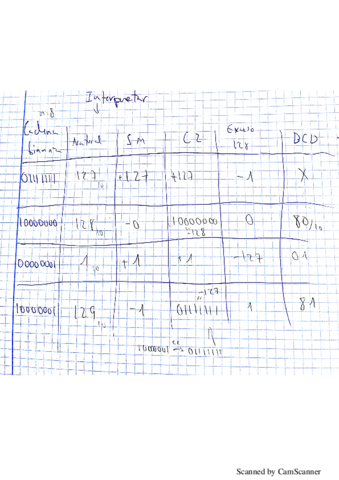 Interpretar
n=8
Cadena binaria Natural SM C2 Exceso 128 BCD
01111111 127₁₀ +127 +127 -1 X
10000000 128₁₀ -0 10000000 = -128 0 80/₁₀
00000001 1₁₀ +1 +1 -127 01
10000001 129₁₀ -1 -127 01111111 1 81
10000001 C2→ 01111111
Scanned by CamScanner